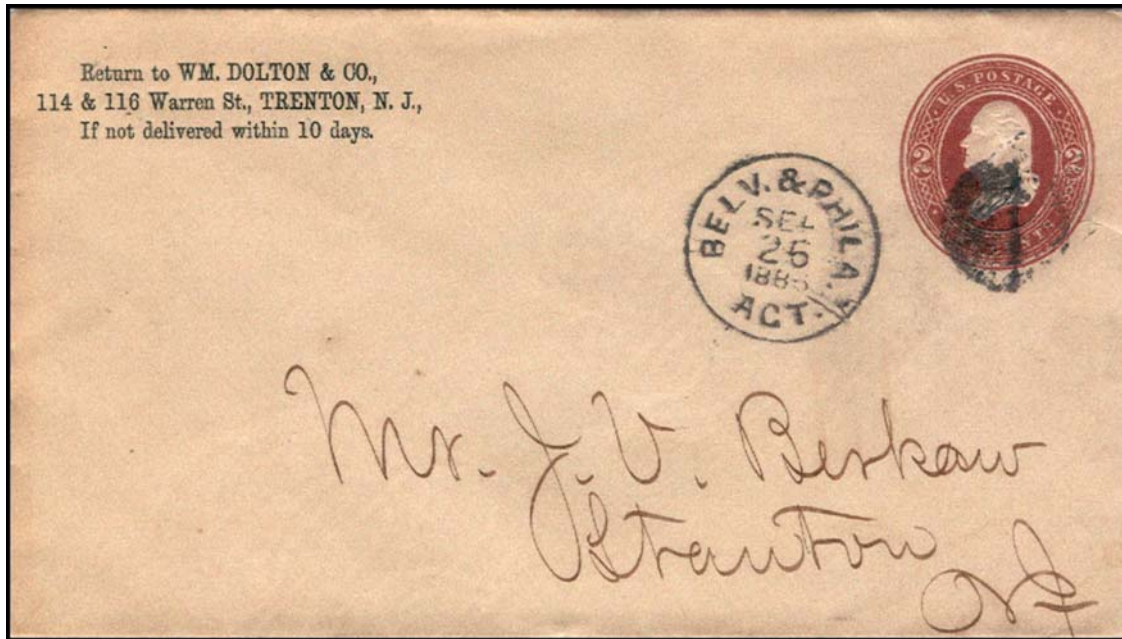 Return to WM. DOLTON & CO.,
114 & 116 Warren St., TRENTON, N. J.,
If not delivered within 10 days.
U.S. POSTAGE
2 2
BELV. & PHILA.
26
ACT.
Mr. J. V. Berkaw
Stanton
NJ